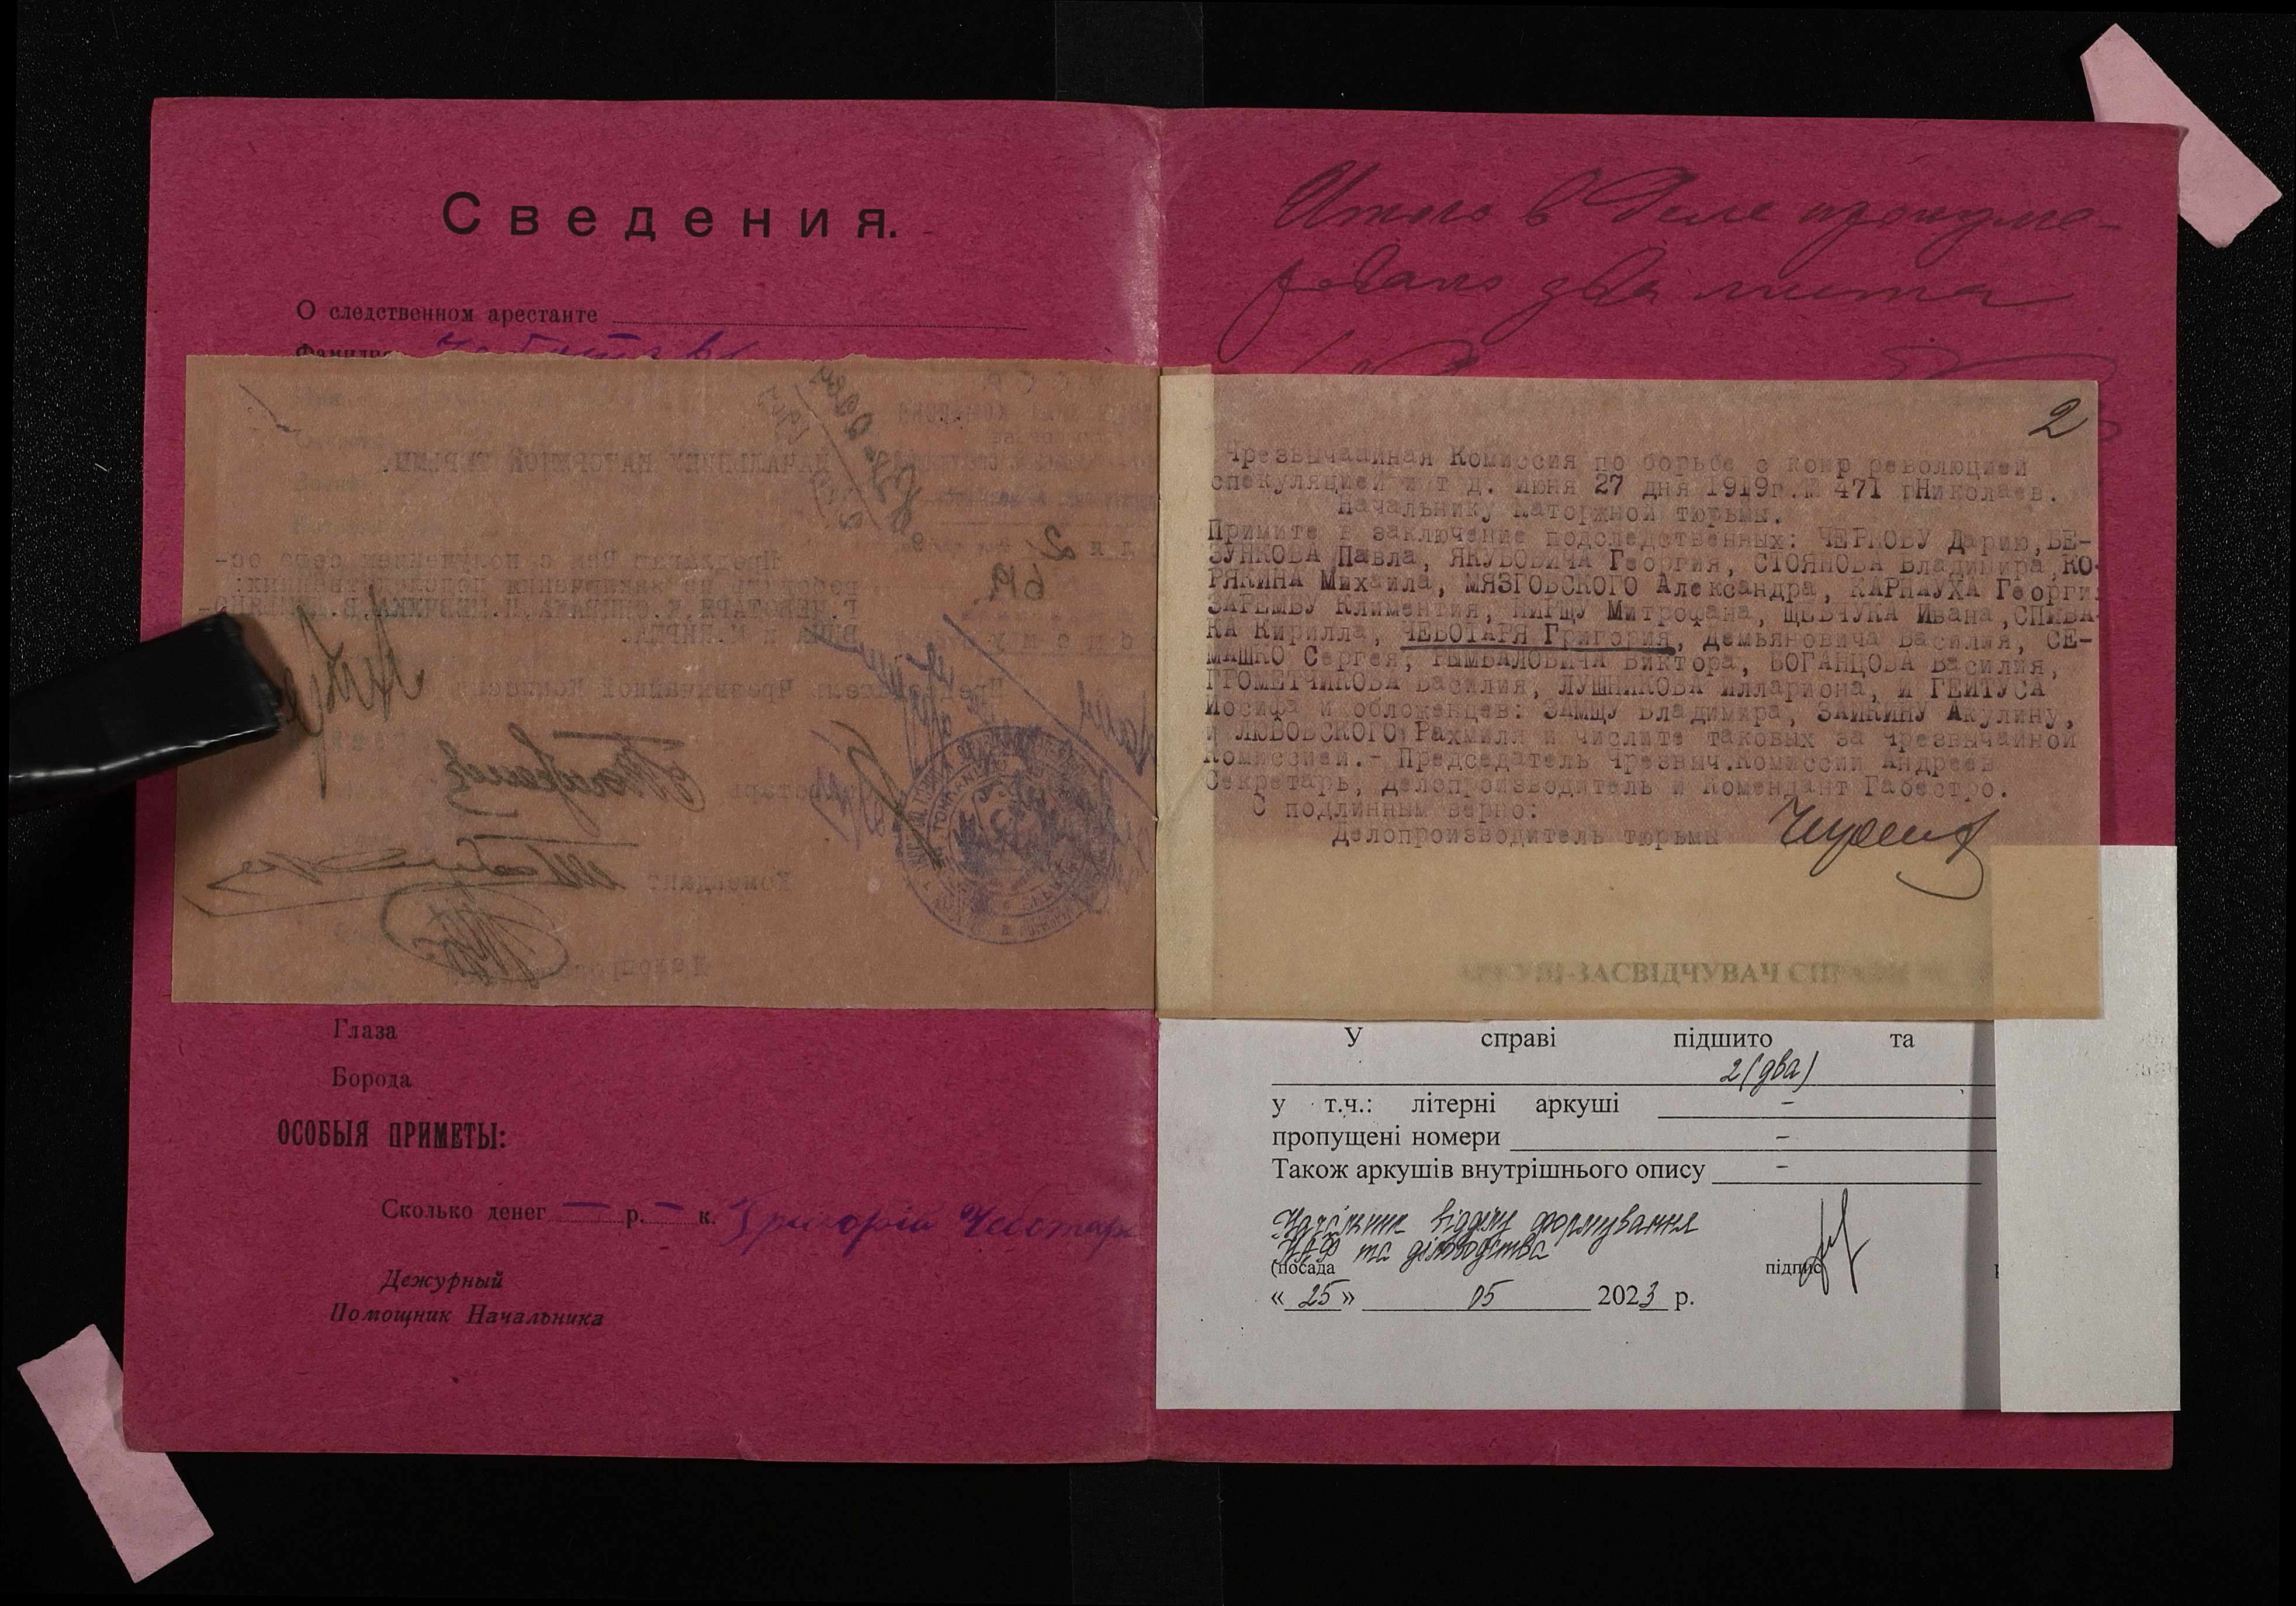 Сведения.
О следственном арестанте
Фамилия
Глаза
Борода
ОСОБЫЯ ПРИМЕТЫ:
Сколько денег — р. — к. Григорій Чеботарь
Дежурный
Помощник Начальника
НАЧАЛЬНИКУ КАТОРЖНОЙ ТЮРЬМЫ.
Предлагаю Вам с получением сего ос-
вободить из заключения подследственных:
Г.ЧЕБОТАРЯ, К.СПИВАКА, И.ШЕВЧУКА, В.ДЕМЬЯНО-
ВИЧА и М.
Чрезвычайной Комиссии
Комендант
Итого в деле пронуме-
ровано два листа
2
Чрезвычайная Комиссия по борьбе с конр революцией
спекуляцией и т д. Июня 27 дня 1919г.№ 471 гНиколаев.
Начальнику Каторжной тюрьмы.
Примите в заключение подследственных: ЧЕРНОВУ Дарию, БЕ-
ЗУНКОВА Павла, ЯКУБОВИЧА Георгия, СТОЯНОВА Владимира, КО-
РЯКИНА Михаила, МЯЗГОВСКОГО Александра, КАРНАУХА Георги
ЗАРЕМБУ Климентия, Митрофана, ШЕВЧУКА Ивана, СПИВА-
КА Кирилла, ЧЕБОТАРЯ Григория, Демьяновича Василия, СЕ-
МАШКО Сергея, РЫМБАЛОВИЧА Виктора, БОГАНЦОВА Василия,
ГРОМЕТЧИКОВА Василия, ЛУШНИКОВА Иллариона, И ГЕЙТУСА
Иосифа и обложенцев: ЗАМЩУ Владимира, ЗАИКИНУ Акулину,
и ЛЮБОВСКОГО Рахмиля и числите таковых за Чрезвычайной
Комиссией.- Председатель Чрезвыч.Комиссии Андреев
Секретарь, делопроизводитель и Комендант Габестро.
С подлинным верно:
Делопроизводитель тюрьмы
АРКУШ-ЗАСВІДЧУВАЧ СПРАВИ
У справі підшито та
2 (два)
у т.ч.: літерні аркуші –
пропущені номери –
Також аркушів внутрішнього опису –
Начальник відділу формування
НАФ та діловодства
(посада підпис
« 25 » 05 2023 р.